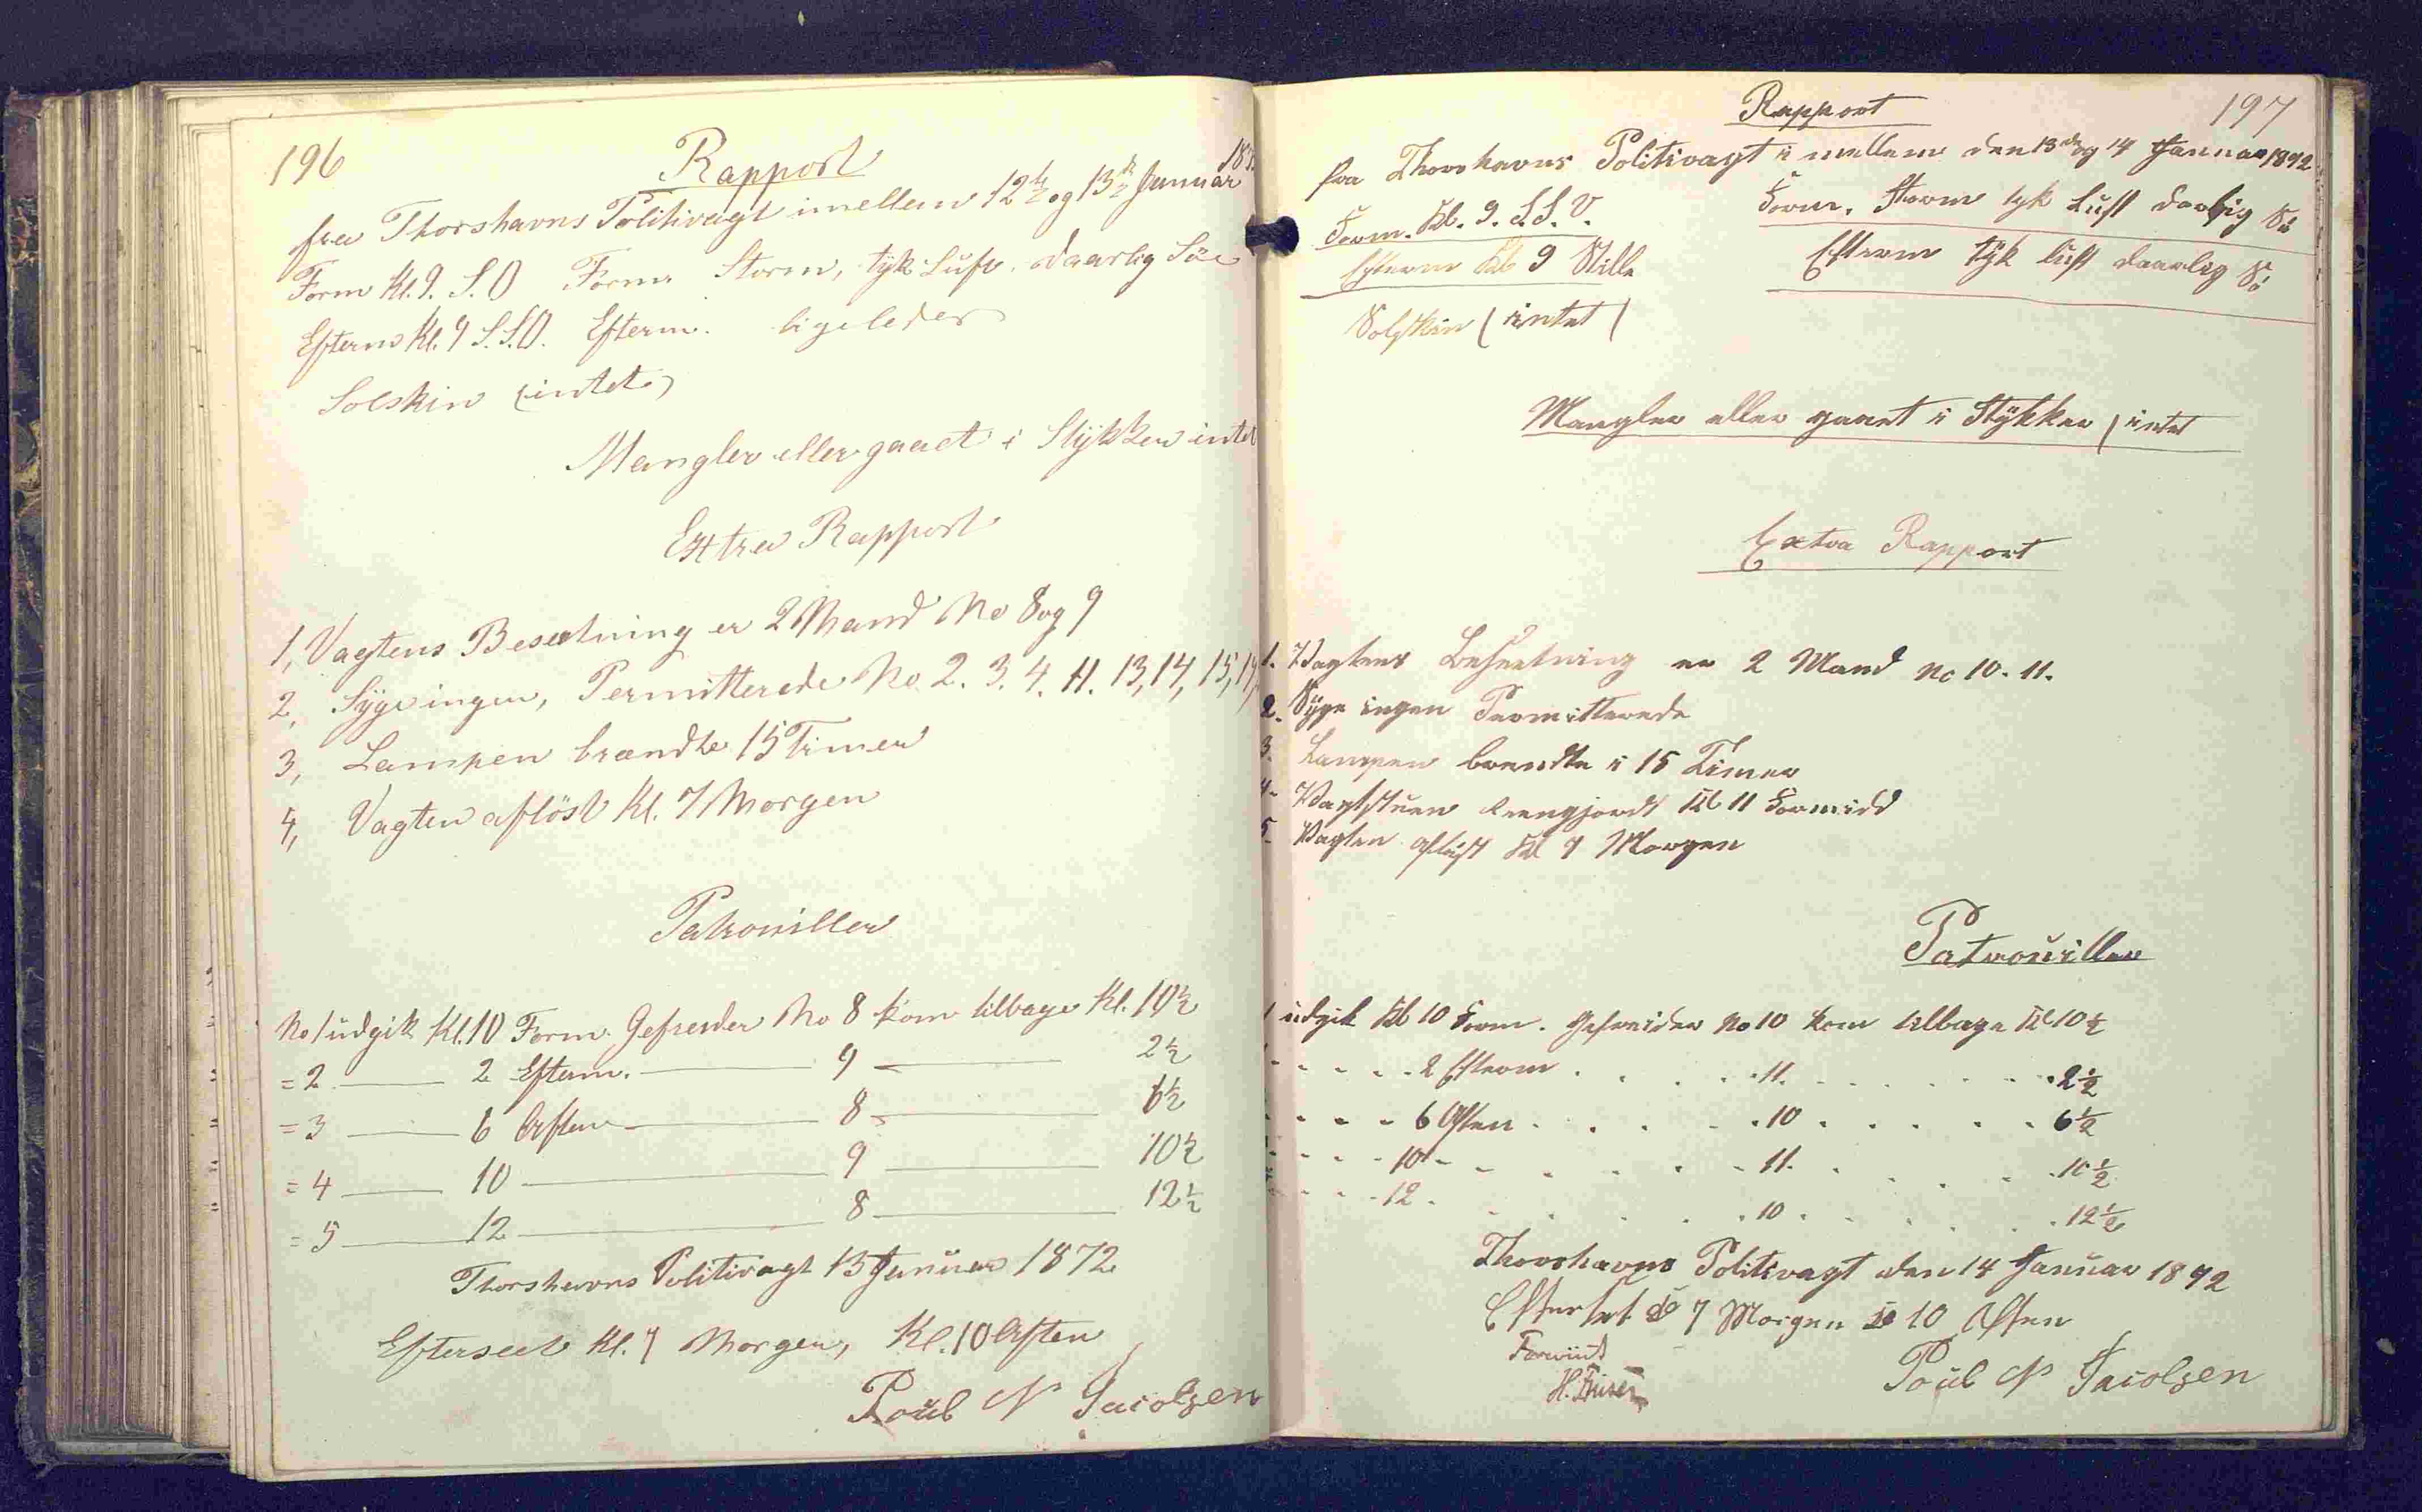 196
Rapport
fra Thorshavns Politivagt imellem 12te og 13de Januar 187
Form Kl. 9. S.O Form. Storm, tyk Luft, daarlig Söe
Efterm Kl. 9 S.S.O. Efterm. ligeledes
Solskin (intet)
Mangler eller gaaet i Stÿkker intet
Extra Rapport
1, Vagtens Besætning er 2 Mand No 8 og 9
2, Sÿge ingen, Permitterede No. 2. 3. 4. 11. 13, 14, 15, 17,
3, Lampen brændte 15 Timer
4, Vagten aflöst Kl. 7 Morgen
Patrouiller
No 1 udgik Kl. 10 Form. Gefreider No 8 kom tilbage Kl. 10½
= 2 — 2 Efterm. — 9 — 2½
= 3 — 6 Aften — 8 — 6½
= 4 — 10 — 9 — 10½
= 5 — 12 — 8 — 12½
Thorshavns Politivagt 13 Januar 1872
Efterseet Kl. 7 Morgen, Kl. 10 Aften
Poul N Jacobsen
197
Rapport
fra Thorshavns Politivagt i mellem den 13de og 14 Januar 1872
Form. Kl. 9. S.S.V. Form. Storm tyk Luft daarlig Sö
Efterm Kl 9 Stille Efterm tÿk luft daarlig Sö
Solskin (intet)
Mangler eller gaaet i Stÿkker (intet
Extra Rapport
1. Vagtens Besætning er 2 Mand No 10. 11.
2. Sÿge ingen Permitterede
3. Lampen brendte i 15 Timer
4. Vagtstuen reengjordt Kl 11 Formidd
5. Vagten aflöst Kl 7 Morgen
Patrouiller
1 udgik Kl 10 Form. Gefreider No 10 kom tilbage Kl 10½
- - - - 2 Efterm . . . . 11. . . . . . 2½
- - - 6 Aften . . . . 10 . . . . . 6½
- - - 10 - - . . . 11. . . . . 10½
- - - 12 . . . . . 10 . . . . . 12½
Thorshavns Politivagt den 14 Januar 1872
Efterset Kl 7 Morgen Kl 10 Aften
Poul N Jacobsen